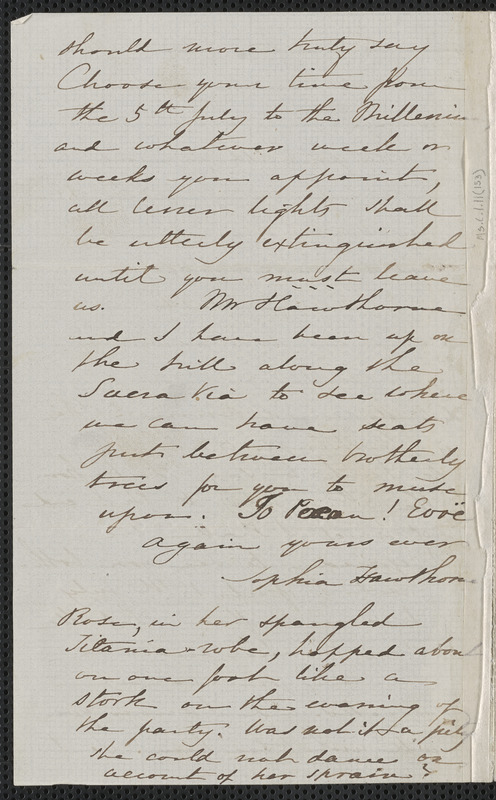 should more truly say
Choose your time from
the 5th July to the Millenium
and whatever week or
weeks you appoint,
all lesser lights shall
be utterly extinguished
until you must leave
us. Mr Hawthorne
and I have been up on
the hill along the
Sacra Via to see where
we can have seats
put between brotherly
trees for you to muse
upon. Io Paean! Evoe
again yours ever
Sophia Hawthorne
Rose, in her spangled
Titania-robe, hopped about
on one foot like a
stork on the evening of
the party. Was not it a pity
she could not dance on
account of her sprain?
Ms.C.1.11(153)